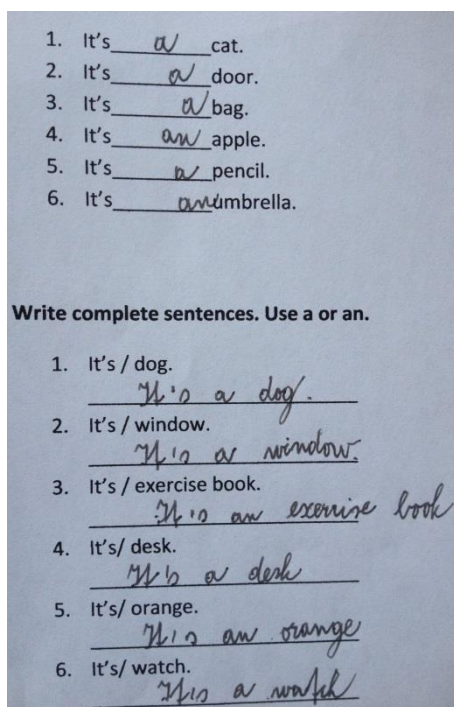 1. It's a cat.
2. It's a door.
3. It's a bag.
4. It's an apple.
5. It's a pencil.
6. It's an umbrella.
Write complete sentences. Use a or an.
1. It's / dog.
It's a dog.
2. It's / window.
It's a window.
3. It's / exercise book.
It's an exercise book
4. It's/ desk.
It's a desk
5. It's/ orange.
It's an orange
6. It's/ watch.
It is a watch